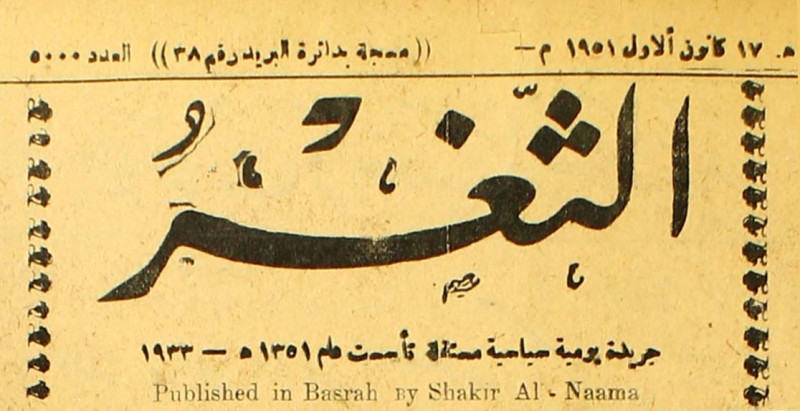 ه. ١٧ كانون ألاول ١٩٥١ م — ((مسجلة بدائرة البريد رقم ٣٨)) العدد ٥٠٠٠
الثَّغْرُ
جريدة يومية سياسية مستقلة تأسست عام ١٣٥١ ه — ١٩٣٣
Published in Basrah BY Shakir Al - Naama